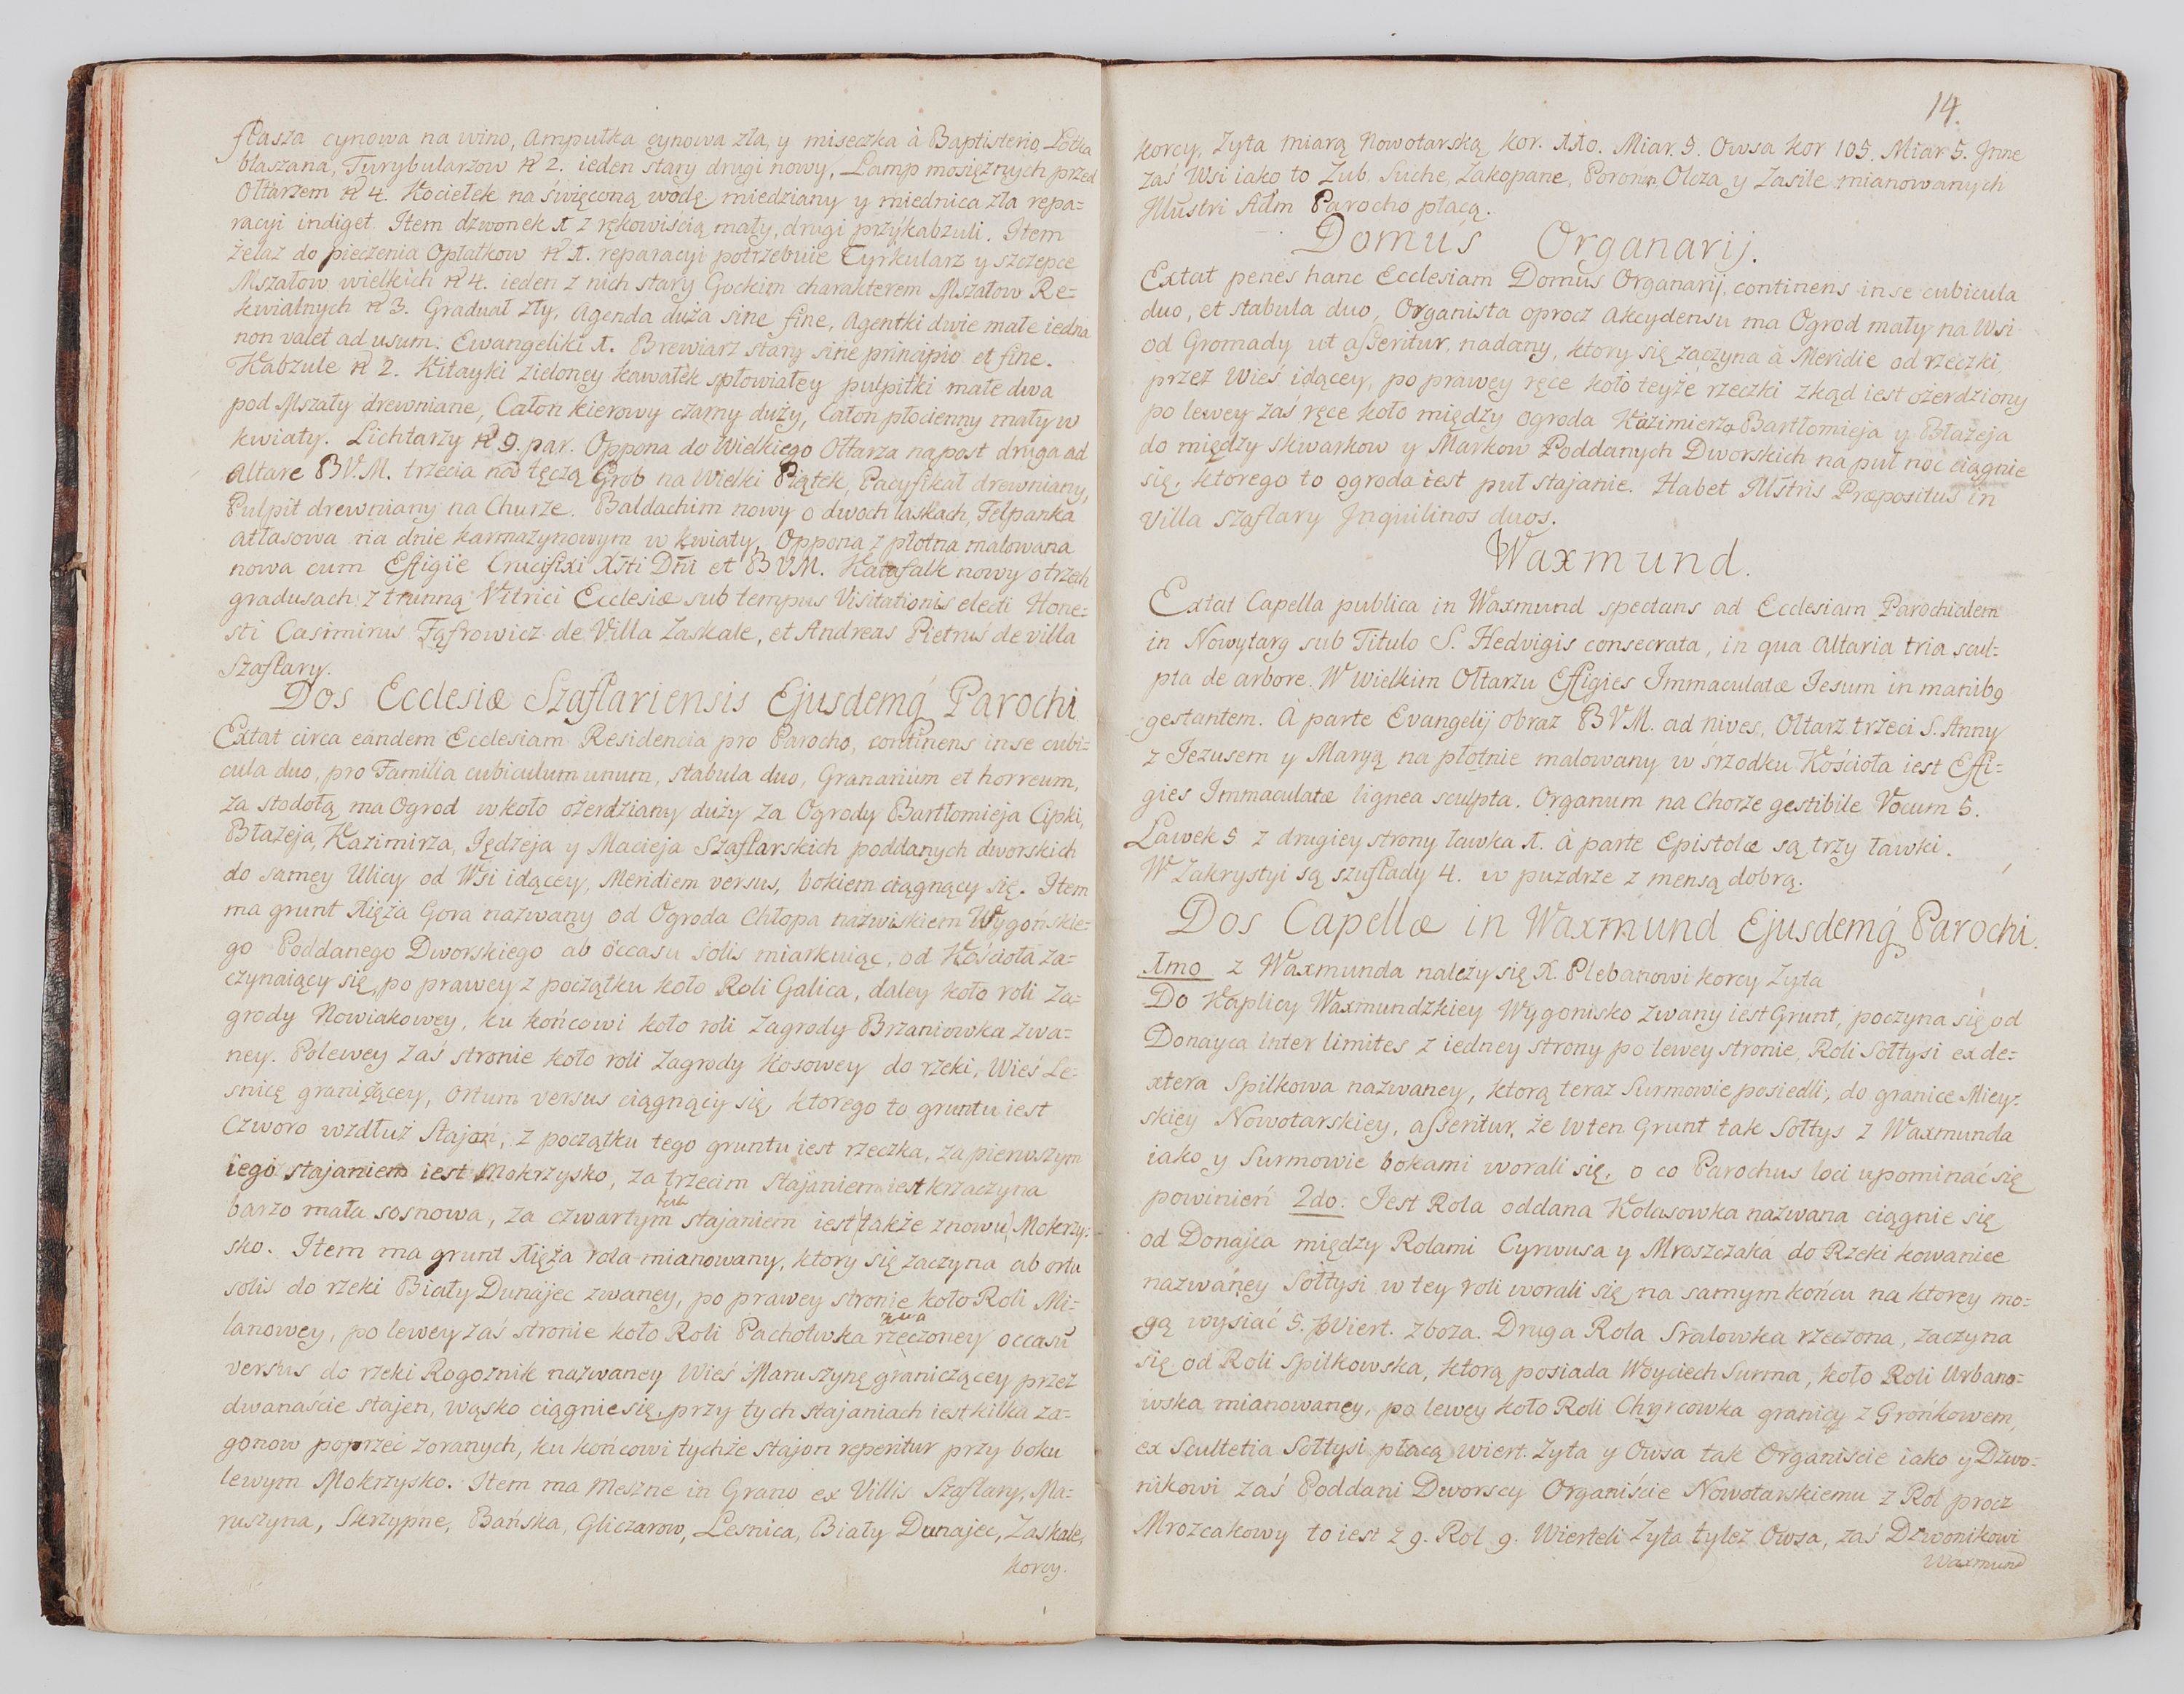 flasza cynowa na wino, Ampułka cynowa zła, y miseczka à Baptisterio, Łotka
blaszana, Turybularzow N 2. ieden stary drugi nowy, Lamp mosięznych przed
Ołtarzem N 4. Kociełek na święconą wodę, miedziany y miednica zła repa=
racyi indiget. Item dzwonek 1. z rękowiścią mały, drugi przy kabzuli. Item
żelaz do pieczenia Opłatkow N 1. reparacyi potrzebuie Cyrkularz y szczepce
Mszałow wielkich N 4. ieden z nich stary Gockim charakterem Mszałow Re=
kwialnych N 3. Graduał zły, Agenda duża sine fine, Agentki dwie małe iedna
non valet ad usum. Ewangeliki 1. Brewiarz stary sine principio et fine.
Kabzule N 2. Kitayki zieloney kawałek spłowiałey pulpitki małe dwa
pod Mszały drewniane, Całon kierowy czarny duży, Całon płocienny mały w
kwiaty. Lichtarzy N 9. par. Oppona do Wielkiego Ołtarza na post druga ad
Altare B.V.M. trzecia nad tęczą Grob na Wielki Piątek, Pacyfikał drewniany,
Pulpit drewniany na Churze. Baldachim nowy o dwoch laskach, Felpanka
Atłasowa na dnie karmazynowym w kwiaty, Oppona z płotna malowana
nowa cum Effigie Crucifixi Xsti Dni et B V.M. Katafalk nowy o trzech
gradusach z trunną Vitrici Ecclesiæ sub tempus Visitationis electi Hone=
sti Casimirus Fąfrowicz de Villa Zaskale, et Andreas Pietruś de villa
Szaflary.
Dos Ecclesiæ Szaflariensis Ejusdemq Parochi
Extat circa eandem Ecclesiam Residencia pro Parocho, continens in se cubi=
cula duo, pro Familia cubiculum unum, stabula duo, Granarium et horreum,
za stodołą ma Ogrod wkoło ożerdziany duży za Ogrody Bartłomieja Cipki,
Błażeja, Kazimirza, Jędżeja y Macieja Szaflarskich poddanych dworskich
do samey Ulicy od Wsi idącey, Meridiem versus, bokiem ciągnący się. Item
ma grunt Xięża Gora nazwany od Ogroda Chłopa nazwiskiem Wygońskie=
go Poddanego Dworskiego ab occasu solis miarkuiąc, od Kościoła za=
czynaiący się, po prawey z początku koło Roli Galica, daley koło roli Za=
grody Nowiakowey, ku końcowi koło roli zagrody Brzaniowka zwa=
ney. Polewey zaś stronie koło roli Zagrody Kosowey do rzeki, Wieś Le=
snicę graniczącey, ortum versus ciągnący się, ktorego to gruntu iest
Czworo wzdłuż Stajań, z początku tego gruntu iest rzeczka, za pierwszym
iego stajaniem iest Mokrzysko, za trzecim Stajaniem iest krzaczyna
barzo mała sosnowa, za czwartym stajaniem iest także znowu Mokrzy=
sko. Item ma grunt Xięża rola mianowany, ktory się zaczyna ab ortu
solis do rzeki Biały Dunajec zwaney, po prawey stronie koło Roli Mi=
lanowey, po lewey zaś stronie koło Roli Pachołwka rzeczoney occasu
versus do rzeki Rogoznik nazwaney Wieś Maruszynę graniczącey przez
dwanaście stajen, wąsko ciągnie się, przy tych stajaniach iest kilka za=
gonow poprzec zoranych, ku końcowi tychże stajon reperitur przy boku
lewym Mokrzysko. Item ma Meszne in Grano ex Villis Szaflary, Ma=
ruszyna, Skrzypne, Bańska, Gliczarow, Lesnica, Biały Dunajec, Zaskale,
korcy.
14.
korcy, Zyta miarą Nowotarską kor. 110. Miar. 5. Owsa kor 105. Miar 5. Inne
zaś Wsi iako to Zub. Suche, Zakopane, Poronin, Olcza y Zasile mianowanych
Illustri Adm Parocho płacą.
Domus Organarij.
Extat penes hanc Ecclesiam Domus Organarij, continens in se cubicula
duo, et stabula duo, Organista oprocz Akcydensu ma Ogrod mały na Wsi
od Gromady ut asseritur, nadany, ktory się zaczyna à Meridie od rzeczki
przez Wieś idącey, po prawey ręce koło teyże rzeczki zkąd iest ożerdziony
po lewey zaś ręce koło między ogroda Kazimierza Bartłomieja y Błażeja
do między Skwarkow y Markow Poddanych Dworskich na puł noc ciągnie
się, ktorego to ogroda iest puł stajanie. Habet Illstris Præpositus in
Villa Szaflary Inquilinos duos.
Waxmund.
Extat Capella publica in Waxmund spectans ad Ecclesiam Parochialem
in Nowytarg sub Titulo S. Hedvigis consecrata, in qua Altaria tria scul=
pta de arbore. W wielkim Ołtarzu Effigies Immaculatæ Iesum in manib9
gestantem. A parte Evangelij obraz B V.M. ad nives, Ołtarz trzeci S. Anny
z Jezusem y Maryą na płotnie malowany w śrzodku Kościoła iest Effi=
gies Immaculatæ lignea sculpta. Organum na Chorze gestibile Vocum 5.
Ławek 5 z drugiey strony ławka 1. à parte Epistolæ są trzy ławki.
W Zakrystyi są szuflady 4. w puzdrze z mensą dobrą.
Dos Capellæ in Waxmund Ejusdemq Parochi.
1mo z Waxmunda należy się X. Plebanowi korcy Zyta
Do Kaplicy Waxmundzkiey Wygonisko zwany iest Grunt, poczyna się od
Donayca inter limites z iedney strony po lewey stronie, Roli Sołtysi ex de=
xtera Spilkowa nazwaney, ktorą teraz Surmowie posiedli, do granice Miey=
skiey Nowotarskiey, asseritur, że w ten Grunt tak Sołtys z Waxmunda
iako y Surmowie bokami worali się, o co Parochus loci upominać się
powinień 2do. Jest Rola oddana Kolasowka nazwana ciągnie się
od Donajca między Rolami Cyrwusa y Mroszczaka do Rzeki kowaniec
nazwaney Sołtysi w tey roli worali się na samym końcu na ktorey mo=
gą wysiać 5. Wiert. zboza. Druga Rola Sralowka rzeczona, zaczyna
się od Roli Spilkowska, ktorą posiada Woyciech Surma, koło Roli Urbano=
wska mianowaney, po lewey koło Roli Chyrcowka granicy z Grońkowem,
ex Scultetia Sołtysi płacą wiert. Zyta y Owsa tak Organiscie iako y Dzwo=
nikowi zaś Poddani Dworscy Organiście Nowotarskiemu z Rol procz
Mrozcakowy to iest z 9. Rol 9. Wierteli Zyta tylez Owsa, zaś Dzwonikowi
Waxmund